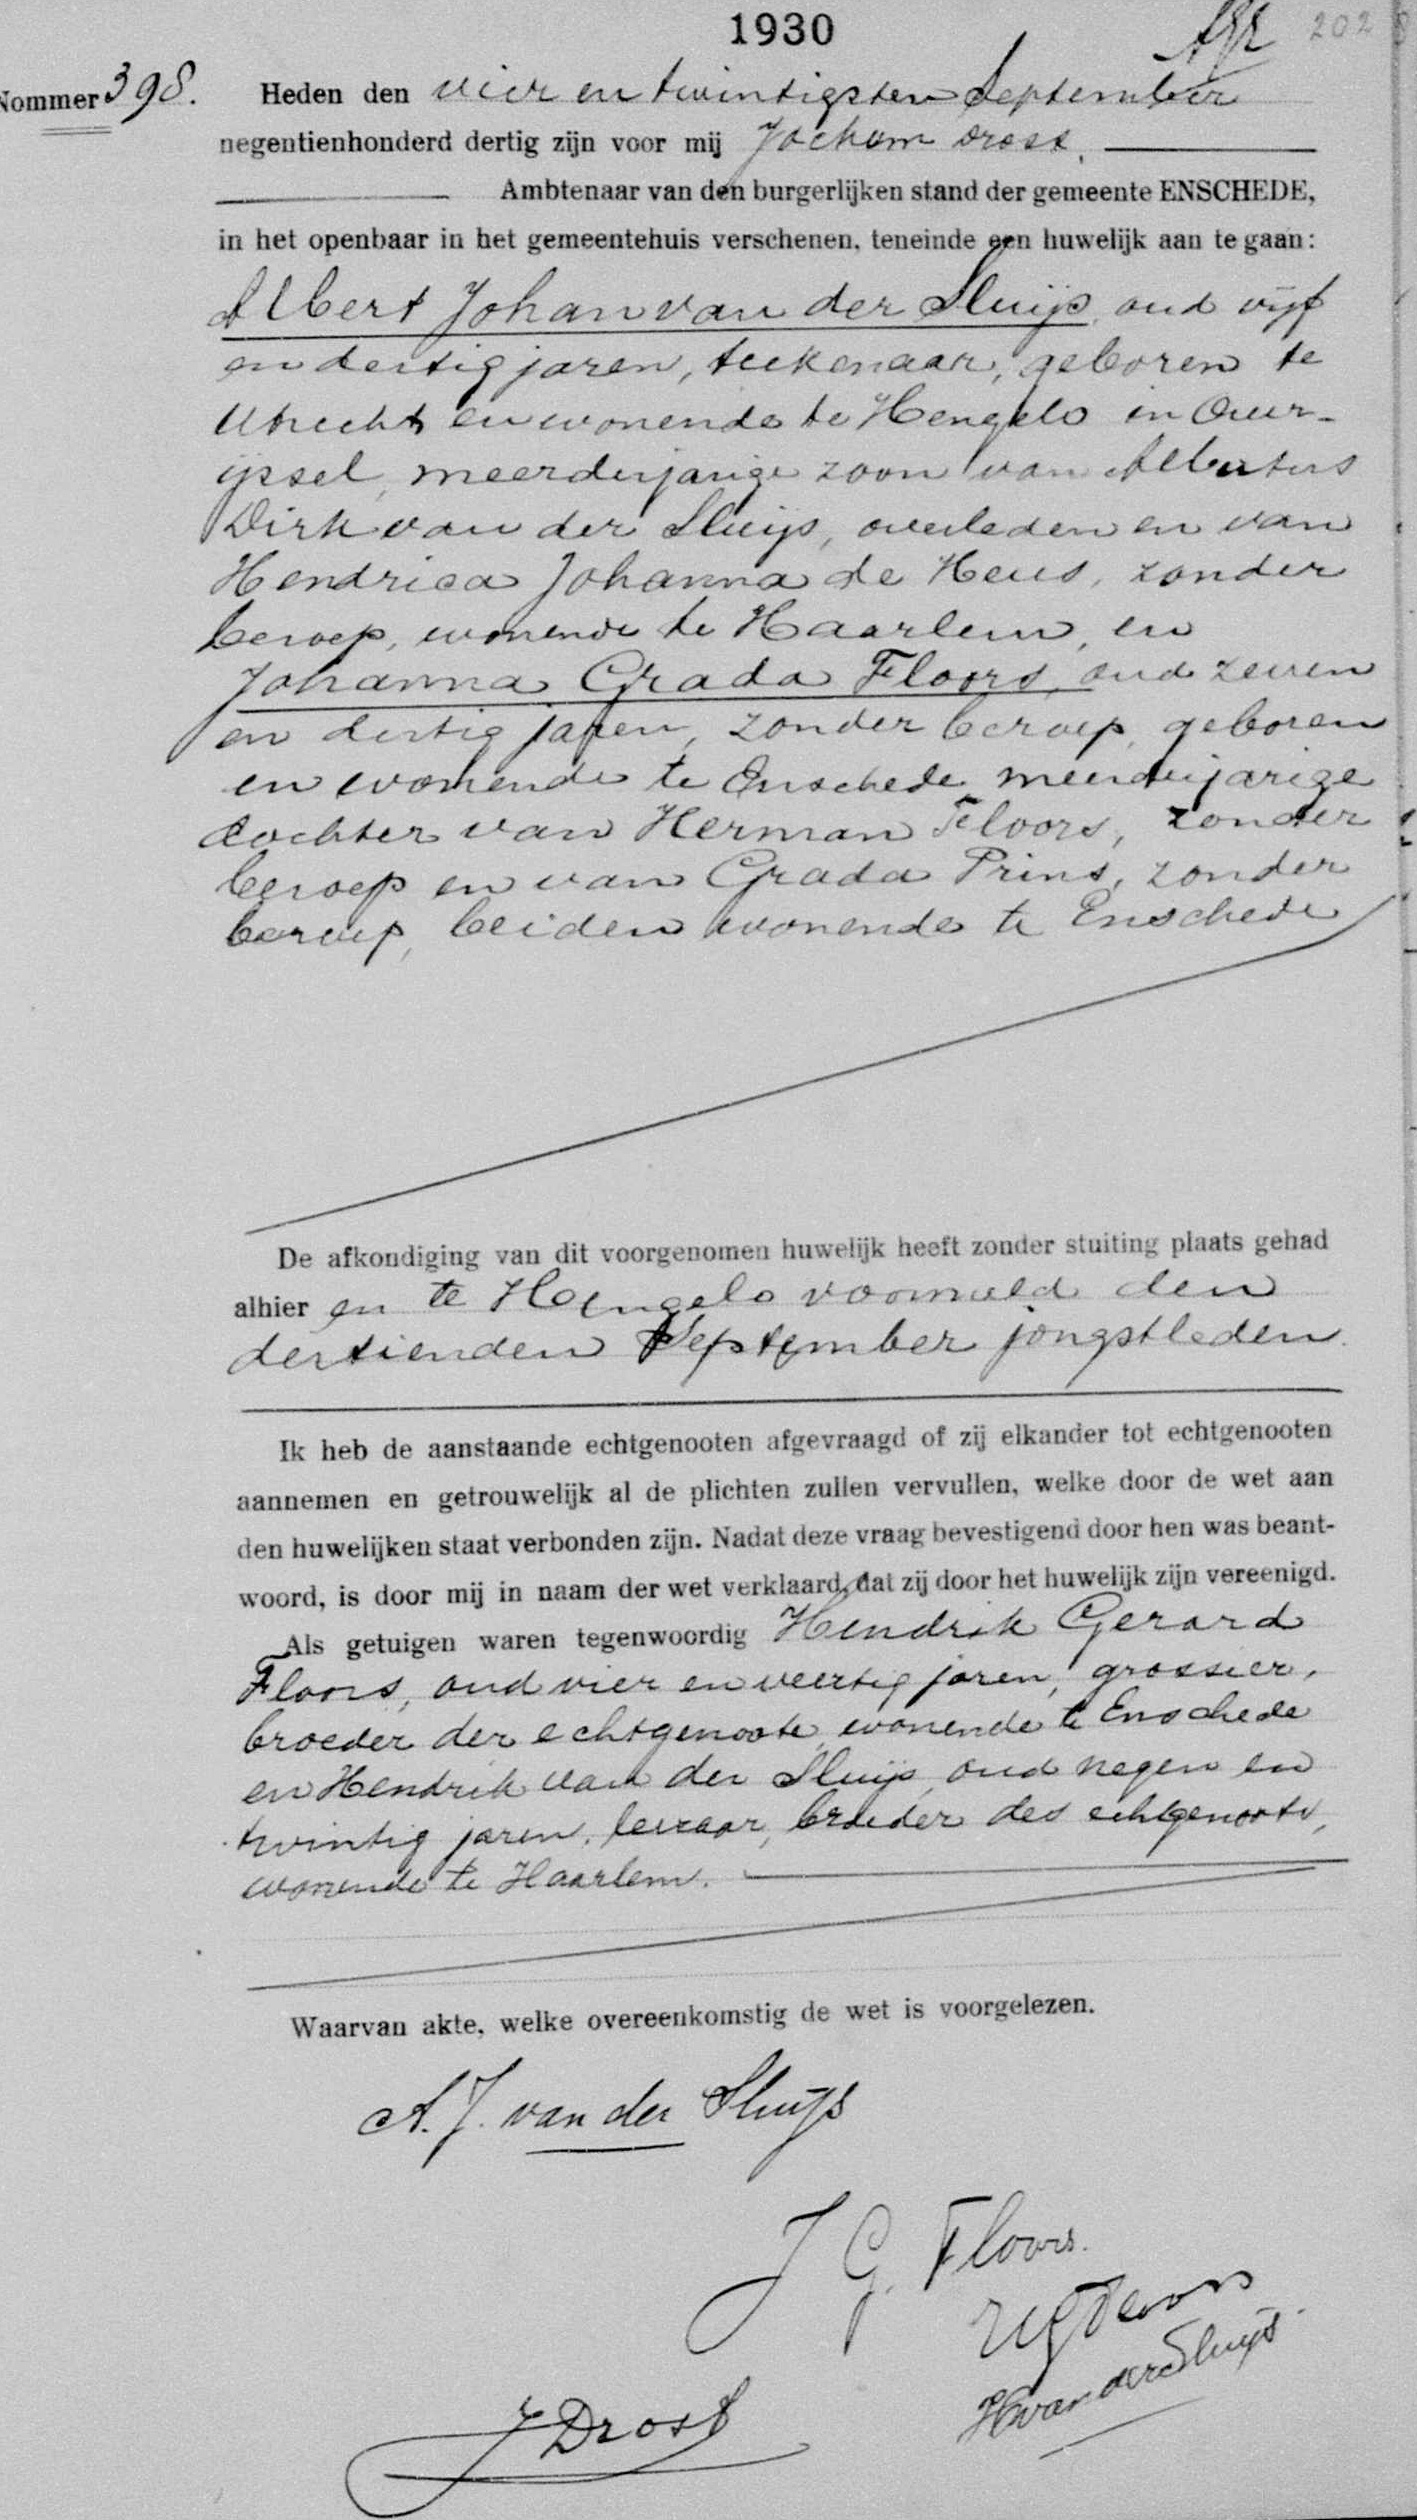 1930
202
Nommer 398. Heden den vier en twintigsten September
negentienhonderd dertig zijn voor mij Jochum Drost,
Ambtenaar van den burgerlijken stand der gemeente ENSCHEDE,
in het openbaar in het gemeentehuis verschenen, teneinde een huwelijk aan te gaan:
Albert Johan van der Sluijs, oud vijf
en dertig jaren, teekenaar, geboren te
Utrecht en wonende te Hengelo in Over-
ijssel, meerderjarige zoon van Albertus
Dirk van der Sluijs, overleden en van
Hendrica Johanna de Heus, zonder
beroep, wonende te Haarlem, en
Johanna Grada Floors, oud zeven
en dertig jaren, zonder beroep, geboren
en wonende te Enschede, meerderjarige
dochter van Herman Floors, zonder
beroep en van Grada Prins, zonder
beroep, beiden wonende te Enschede
De afkondiging van dit voorgenomen huwelijk heeft zonder stuiting plaats gehad
alhier en te Hengelo voormeld den
dertienden September jongstleden.
Ik heb de aanstaande echtgenooten afgevraagd of zij elkander tot echtgenooten
aannemen en getrouwelijk al de plichten zullen vervullen, welke door de wet aan
den huwelijken staat verbonden zijn. Nadat deze vraag bevestigend door hen was beant-
woord, is door mij in naam der wet verklaard, dat zij door het huwelijk zijn vereenigd.
Als getuigen waren tegenwoordig Hendrik Gerard
Floors, oud vier en veertig jaren, grossier,
broeder der echtgenoote, wonende te Enschede
en Hendrik van der Sluijs, oud negen en
twintig jaren, leeraar, broeder des echtgenoots,
wonende te Haarlem.
Waarvan akte, welke overeenkomstig de wet is voorgelezen.
A. J. van der Sluijs
J G. Floors.
HG Floors
H van der Sluijs.
J Drost